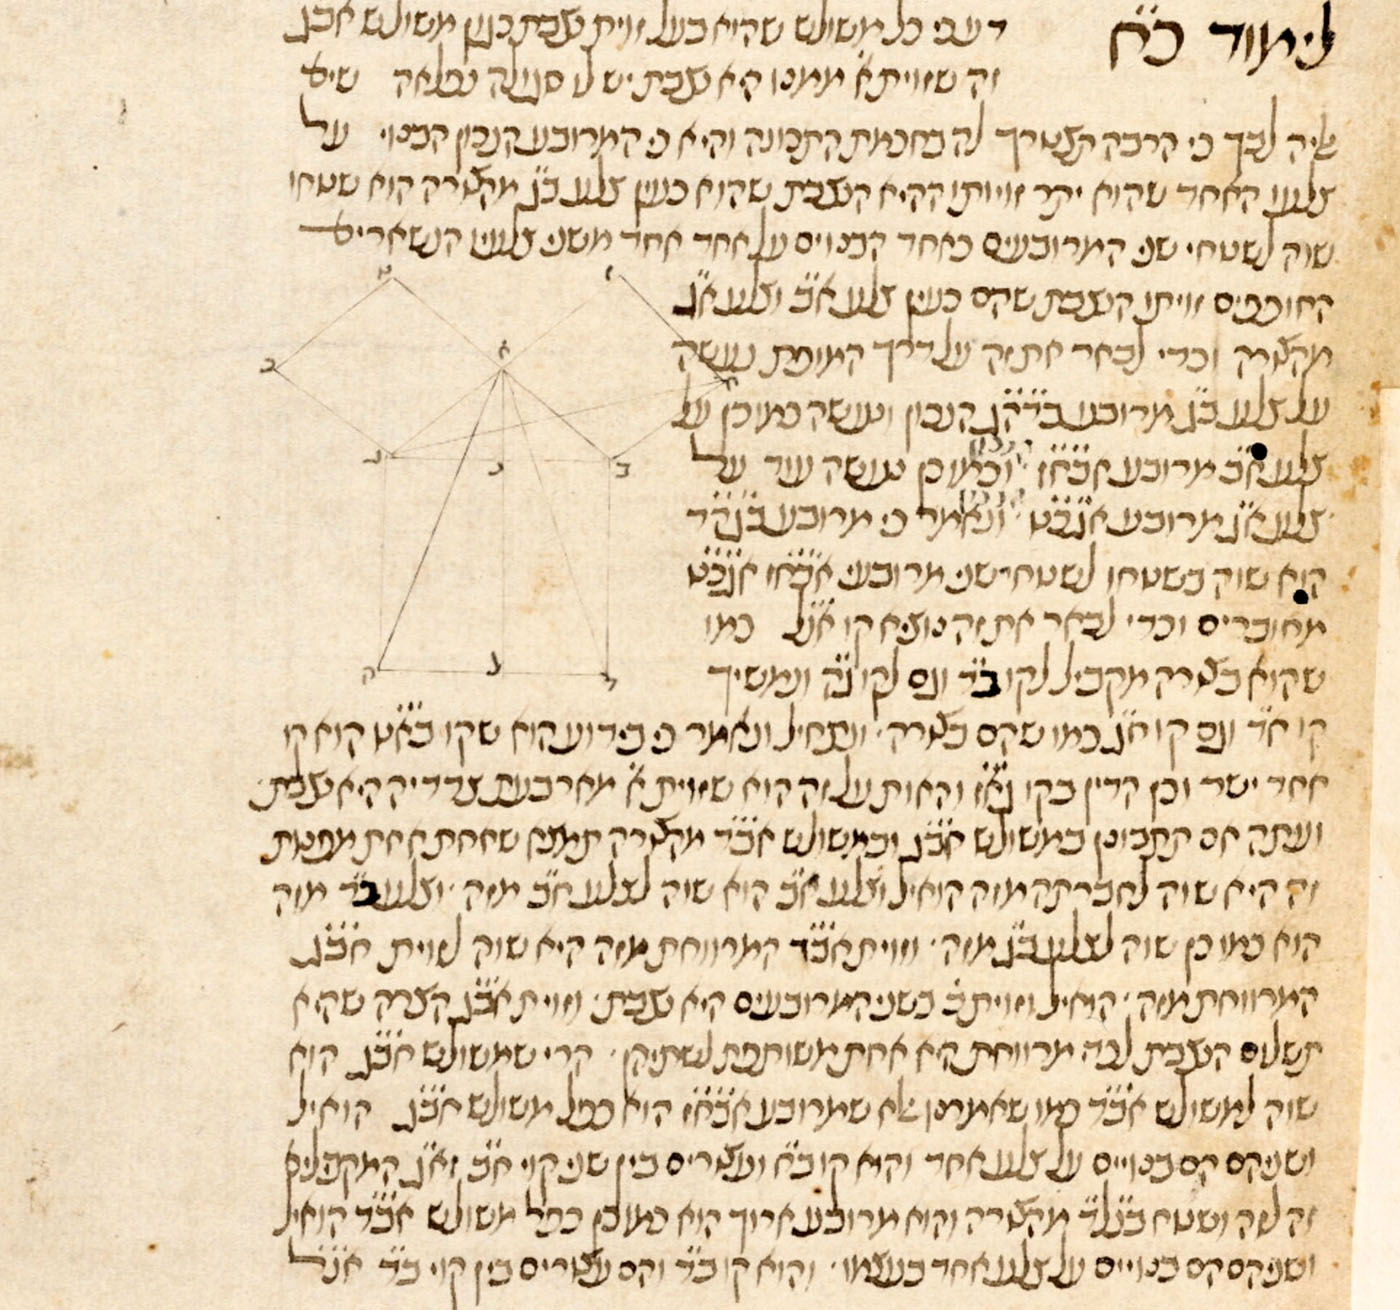 לימוד כ״ח
דע כי כל משולש שהוא בעל זוית נצבת כגון משולש אבג
זה שזוית א ממנו היא נצבת יש לו סגולה נפלאה
ליה לבך כי הרבה תצטרך לה בחכמת התכונה והיא כי המרובע הנכון הבנוי על
צלעו האחד שהוא יתר זויותו ההיא הנצבת שהוא כעין צלע בג מהצורה הוא שטחו
שוה לשטחי שני המרובעים כאחד הבנוים על אחד אחד משני צלעיו הנשארים
המקיפים זויתו הנצבת שהם כעין צלע אב וצלע אג
מהצורה וכדי לבאר את זה על דרך המופת נעשה
על צלע בג מרובע בדהג הנכון ונעשה כמו כן על
צלע אב מרובע אבחז וכמו כן נעשה עוד על
צלע אג מרובע אגכט ונאמר כי מרובע בגהד
הוא שוה בשטחו לשטחי שני מרובעי אבחז אגכט
מחוברים וכדי לבאר את זה נוציא קו אנל כמו
שהוא בצורה מקביל לקו בד וגם לקו גה ונמשיך
קו אד וגם קו חג כמו שהם בצורה ונתחיל ונאמר כי בידוע הוא שקו באט הוא קו
אחד ישר וכן הדין בקו גאז והאות על זה הוא שזוית א מארבעת צדדיה היא נצבת
ועתה אם התבונן במשולש חבג ובמשולש אבד מהצורה תמצא שאחת אחת מפאות
זה היא שוה לחברתה מזה הואיל וצלע אב הוא שוה לצלע חב מזה וצלע בד מזה
הוא כמו כן שוה לצלע בג מזה וזוית אבד המרווחת מזה היא שוה לזוית חבג
המרווחת מזה הואיל וזוית ב בשני המרובעים היא נצבת וזוית אבג הצרה שהיא
תשלום הנצבת לכה מרווחת היא אחת משותפת לשתיהן הרי שמשולש חבג הוא
שוה למשולש אבד כמו שאמרנו אלא שמרובע אבחז הוא ככפל משולש חבג הואיל
ושניהם הם בנויים על צלע אחד והוא קו בח ועצורים בין שני קוי חב זאג המקבילים
זה לזה ושטח בנלד מהצורה והוא מרובע ארוך הוא כמו כן ככפל משולש אבד הואיל
ושניהם הם בנויים על צלע אחד בעצמו והוא קו בד והם עצורים בין קוי בד אנל